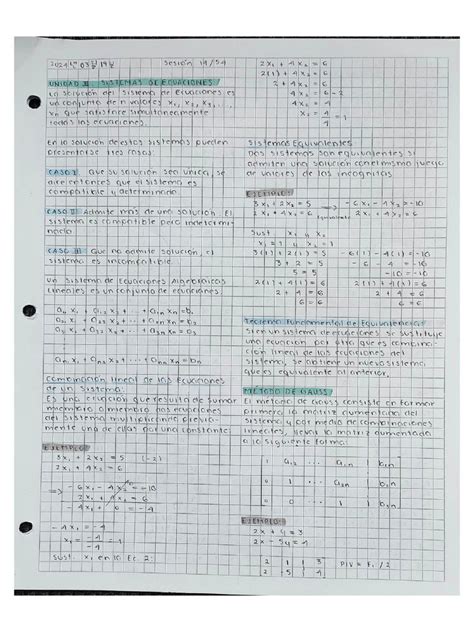 2024 03 19 Sesión 14/54
UNIDAD II SISTEMAS DE ECUACIONES
La solución del sistema de Ecuaciones es
un conjunto de n valores x₁, x₂, x₃, ...,
xₙ que satisface simultaneamente
todas las ecuaciones.
En la solución de estos sistemas pueden
presentarse tres casos:
CASO I Que su solución sea unica, se
dice entonces que el sistema es
compatible y determinado.
CASO II Admite mas de una solución. El
sistema es compatible pero indetermi-
nado.
CASO III Que no admite solución, el
sistema es incompatible.
Un Sistema de Ecuaciones Algebraicas
Lineales es un conjunto de ecuaciones.
+ ... +
+ ... +
+ ... +
+ ... +
Combinación lineal de las Ecuaciones
de un Sistema:
Es una ecuación que resulta de sumar
miembro a miembro dos ecuaciones
del sistema multiplicando previa-
mente una de ellas por una constante.
EJEMPLO:
3x₁ + 2x₂ = 5 (-2)
2x₁ + 4x₂ = 6
=> -6x₁ - 4x₂ = -10
2x₁ + 4x₂ = 6
-4x₁ + 0 = -4
-4x₁ = -4
x₁ = -4/-4 = 1
Sust. x₁ en la Ec. 2:
2x₁ + 4x₂ = 6
2(1) + 4x₂ = 6
2 + 4x₂ = 6
4x₂ = 6 - 2
4x₂ = 4
x₂ = 4/4 = 1
Sistemas Equivalentes
Dos sistemas son equivalentes si
admiten una solución con el mismo juego
de valores de las incognitas.
EJEMPLO:
3x₁ + 2x₂ = 5 => -6x₁ - 4x₂ = -10
2x₁ + 4x₂ = 6 2x₁ + 4x₂ = 6
Sust x₁ y x₂
x₁ = 1 y x₂ = 1
3(1) + 2(1) = 5 -6(1) - 4(1) = -10
3 + 2 = 5 -6 - 4 = -10
5 = 5 -10 = -10
2(1) + 4(1) = 6 2(1) + 4(1) = 6
2 + 4 = 6 2 + 4 = 6
6 = 6 6 = 6
Teorema Fundamental de Equivalencia:
Si en un sistema de ecuaciones se sustituye
una ecuación por otra que es combina-
ción lineal de las ecuaciones del
sistema, se obtiene un nuevo sistema
que es equivalente al anterior.
MÉTODO DE GAUSS
El método de Gauss consiste en formar
primero la matriz aumentada del
sistema y por medio de combinaciones
lineales, llevar la matriz aumentada
a la siguiente forma:
1 ...
0 1 ...
0 0 ... 1
EJEMPLO:
2x + y = 3
2x - 5y = 4
2 1 | 3 PIV = F₁/2
2 -5 | 4